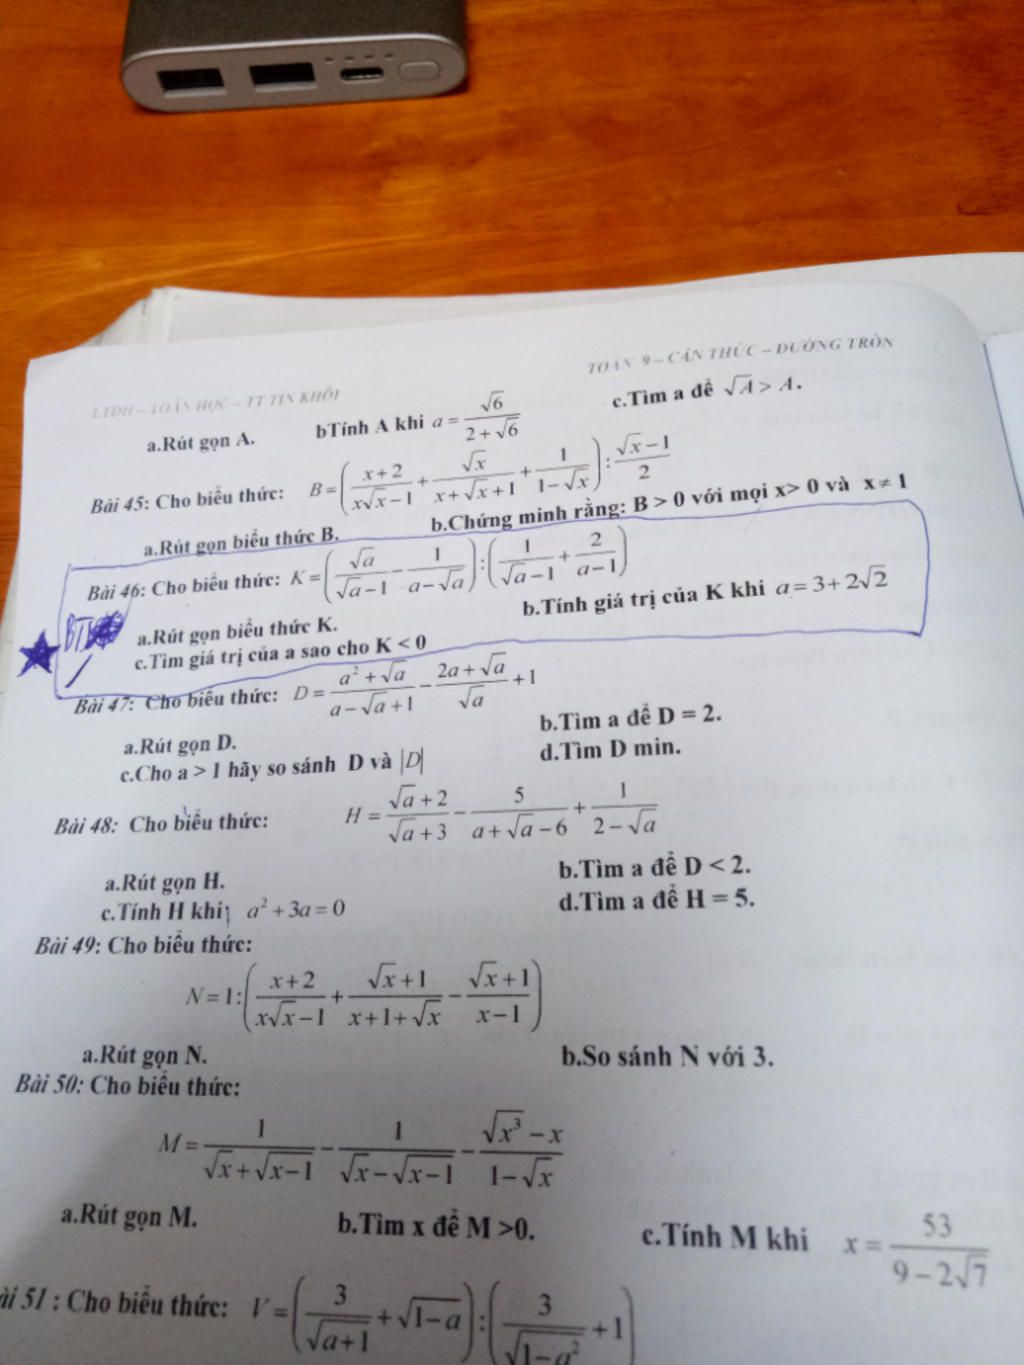 LTĐH – TOÁN HỌC – TT TÍN KHÔI
TOÁN 9 – CĂN THỨC – ĐƯỜNG TRÒN
a.Rút gọn A. bTính A khi a = √6 / (2 + √6) c.Tìm a để √A > A.
Bài 45: Cho biểu thức: B = ( (x+2)/(x√x−1) + √x/(x+√x+1) + 1/(1−√x) ) : (√x−1)/2
a.Rút gọn biểu thức B. b.Chứng minh rằng: B > 0 với mọi x> 0 và x ≠ 1
Bài 46: Cho biểu thức: K = ( √a/(√a−1) − 1/(a−√a) ) : ( 1/(√a−1) + 2/(a−1) )
a.Rút gọn biểu thức K. b.Tính giá trị của K khi a = 3+2√2
c.Tìm giá trị của a sao cho K < 0
Bài 47: Cho biểu thức: D = (a²+√a)/(a−√a+1) − (2a+√a)/√a + 1
a.Rút gọn D. b.Tìm a để D = 2.
c.Cho a > 1 hãy so sánh D và |D| d.Tìm D min.
Bài 48: Cho biểu thức: H = (√a+2)/(√a+3) − 5/(a+√a−6) + 1/(2−√a)
a.Rút gọn H. b.Tìm a để D < 2.
c.Tính H khi a²+3a=0 d.Tìm a để H = 5.
Bài 49: Cho biểu thức:
N = 1 : ( (x+2)/(x√x−1) + (√x+1)/(x+1+√x) − (√x+1)/(x−1) )
a.Rút gọn N. b.So sánh N với 3.
Bài 50: Cho biểu thức:
M = 1/(√x+√(x−1)) − 1/(√x−√(x−1)) − (√(x³)−x)/(1−√x)
a.Rút gọn M. b.Tìm x để M >0. c.Tính M khi x = 53/(9−2√7)
ài 51 : Cho biểu thức: V = ( 3/√(a+1) + √(1−a) ) : ( 3/√(1−a²) + 1 )